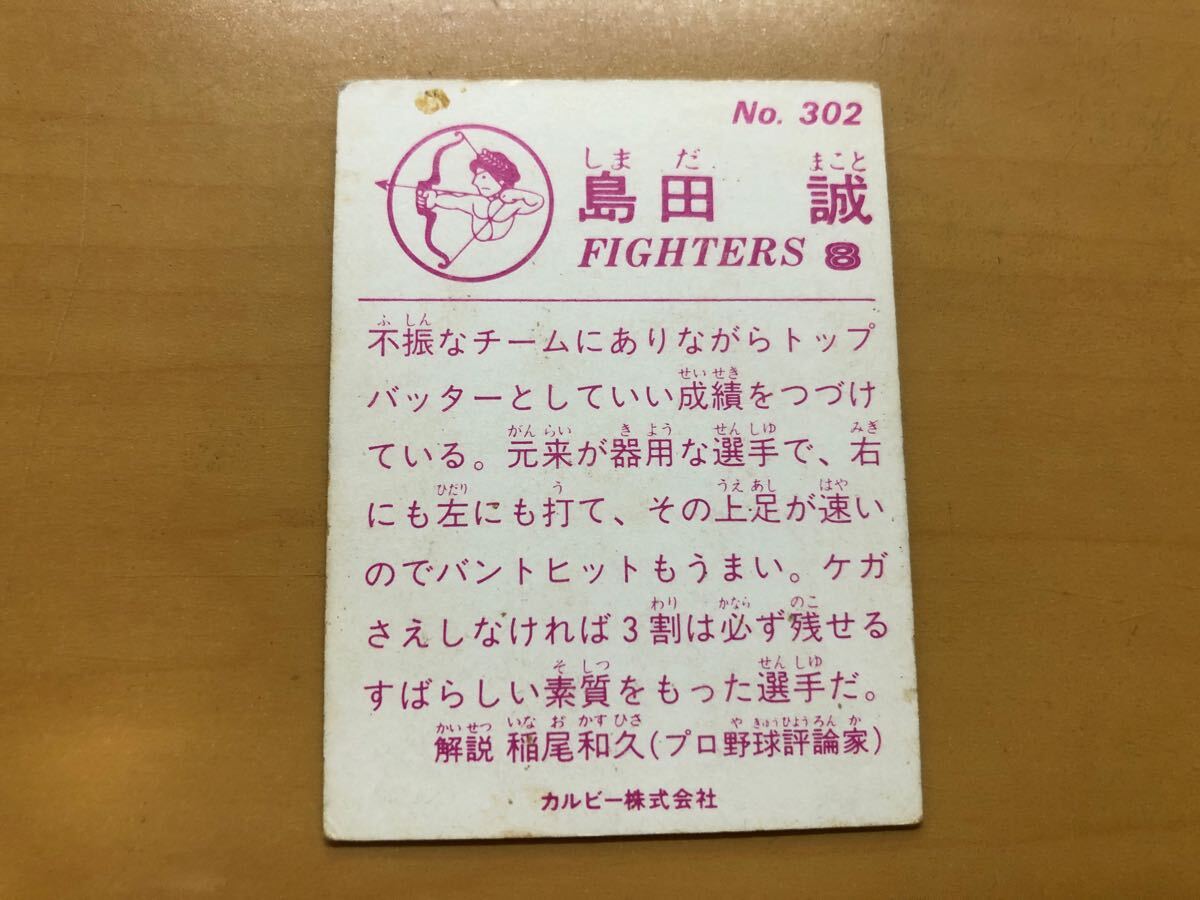 No. 302
しま だ まこと
島田 誠
FIGHTERS 8
ふ しん
不振なチームにありながらトップ
せい せき
バッターとしていい成績をつづけ
がん らい き よう せん しゆ みぎ
ている。元来が器用な選手で、右
ひだり う うえ あし はや
にも左にも打て、その上足が速い
のでバントヒットもうまい。ケガ
わり かなら のこ
さえしなければ3割は必ず残せる
そ しつ せん しゆ
すばらしい素質をもった選手だ。
かい せつ いな お かず ひさ や きゅう ひょう ろん か
解説 稲尾和久(プロ野球評論家)
カルビー株式会社